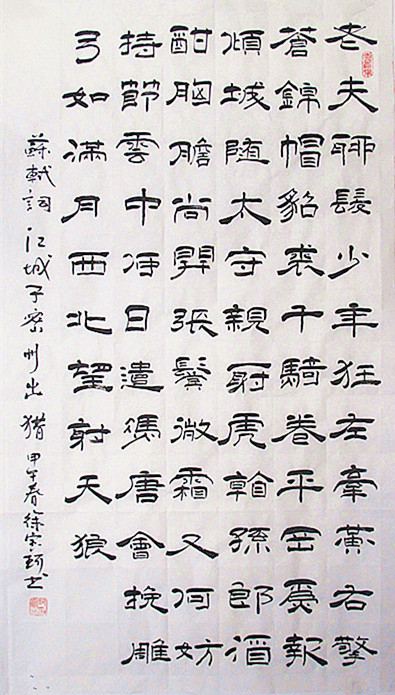 老夫聊髮少年狂左牽黃右擎
蒼錦帽貂裘千騎卷平岡爲報
傾城随太守親射虎看孫郎酒
酣胸膽尚開張鬢微霜又何妨
持節雲中何日遣馮唐會挽雕
弓如滿月西北望射天狼
蘇軾词江城子密州出猎甲午春徐宗书